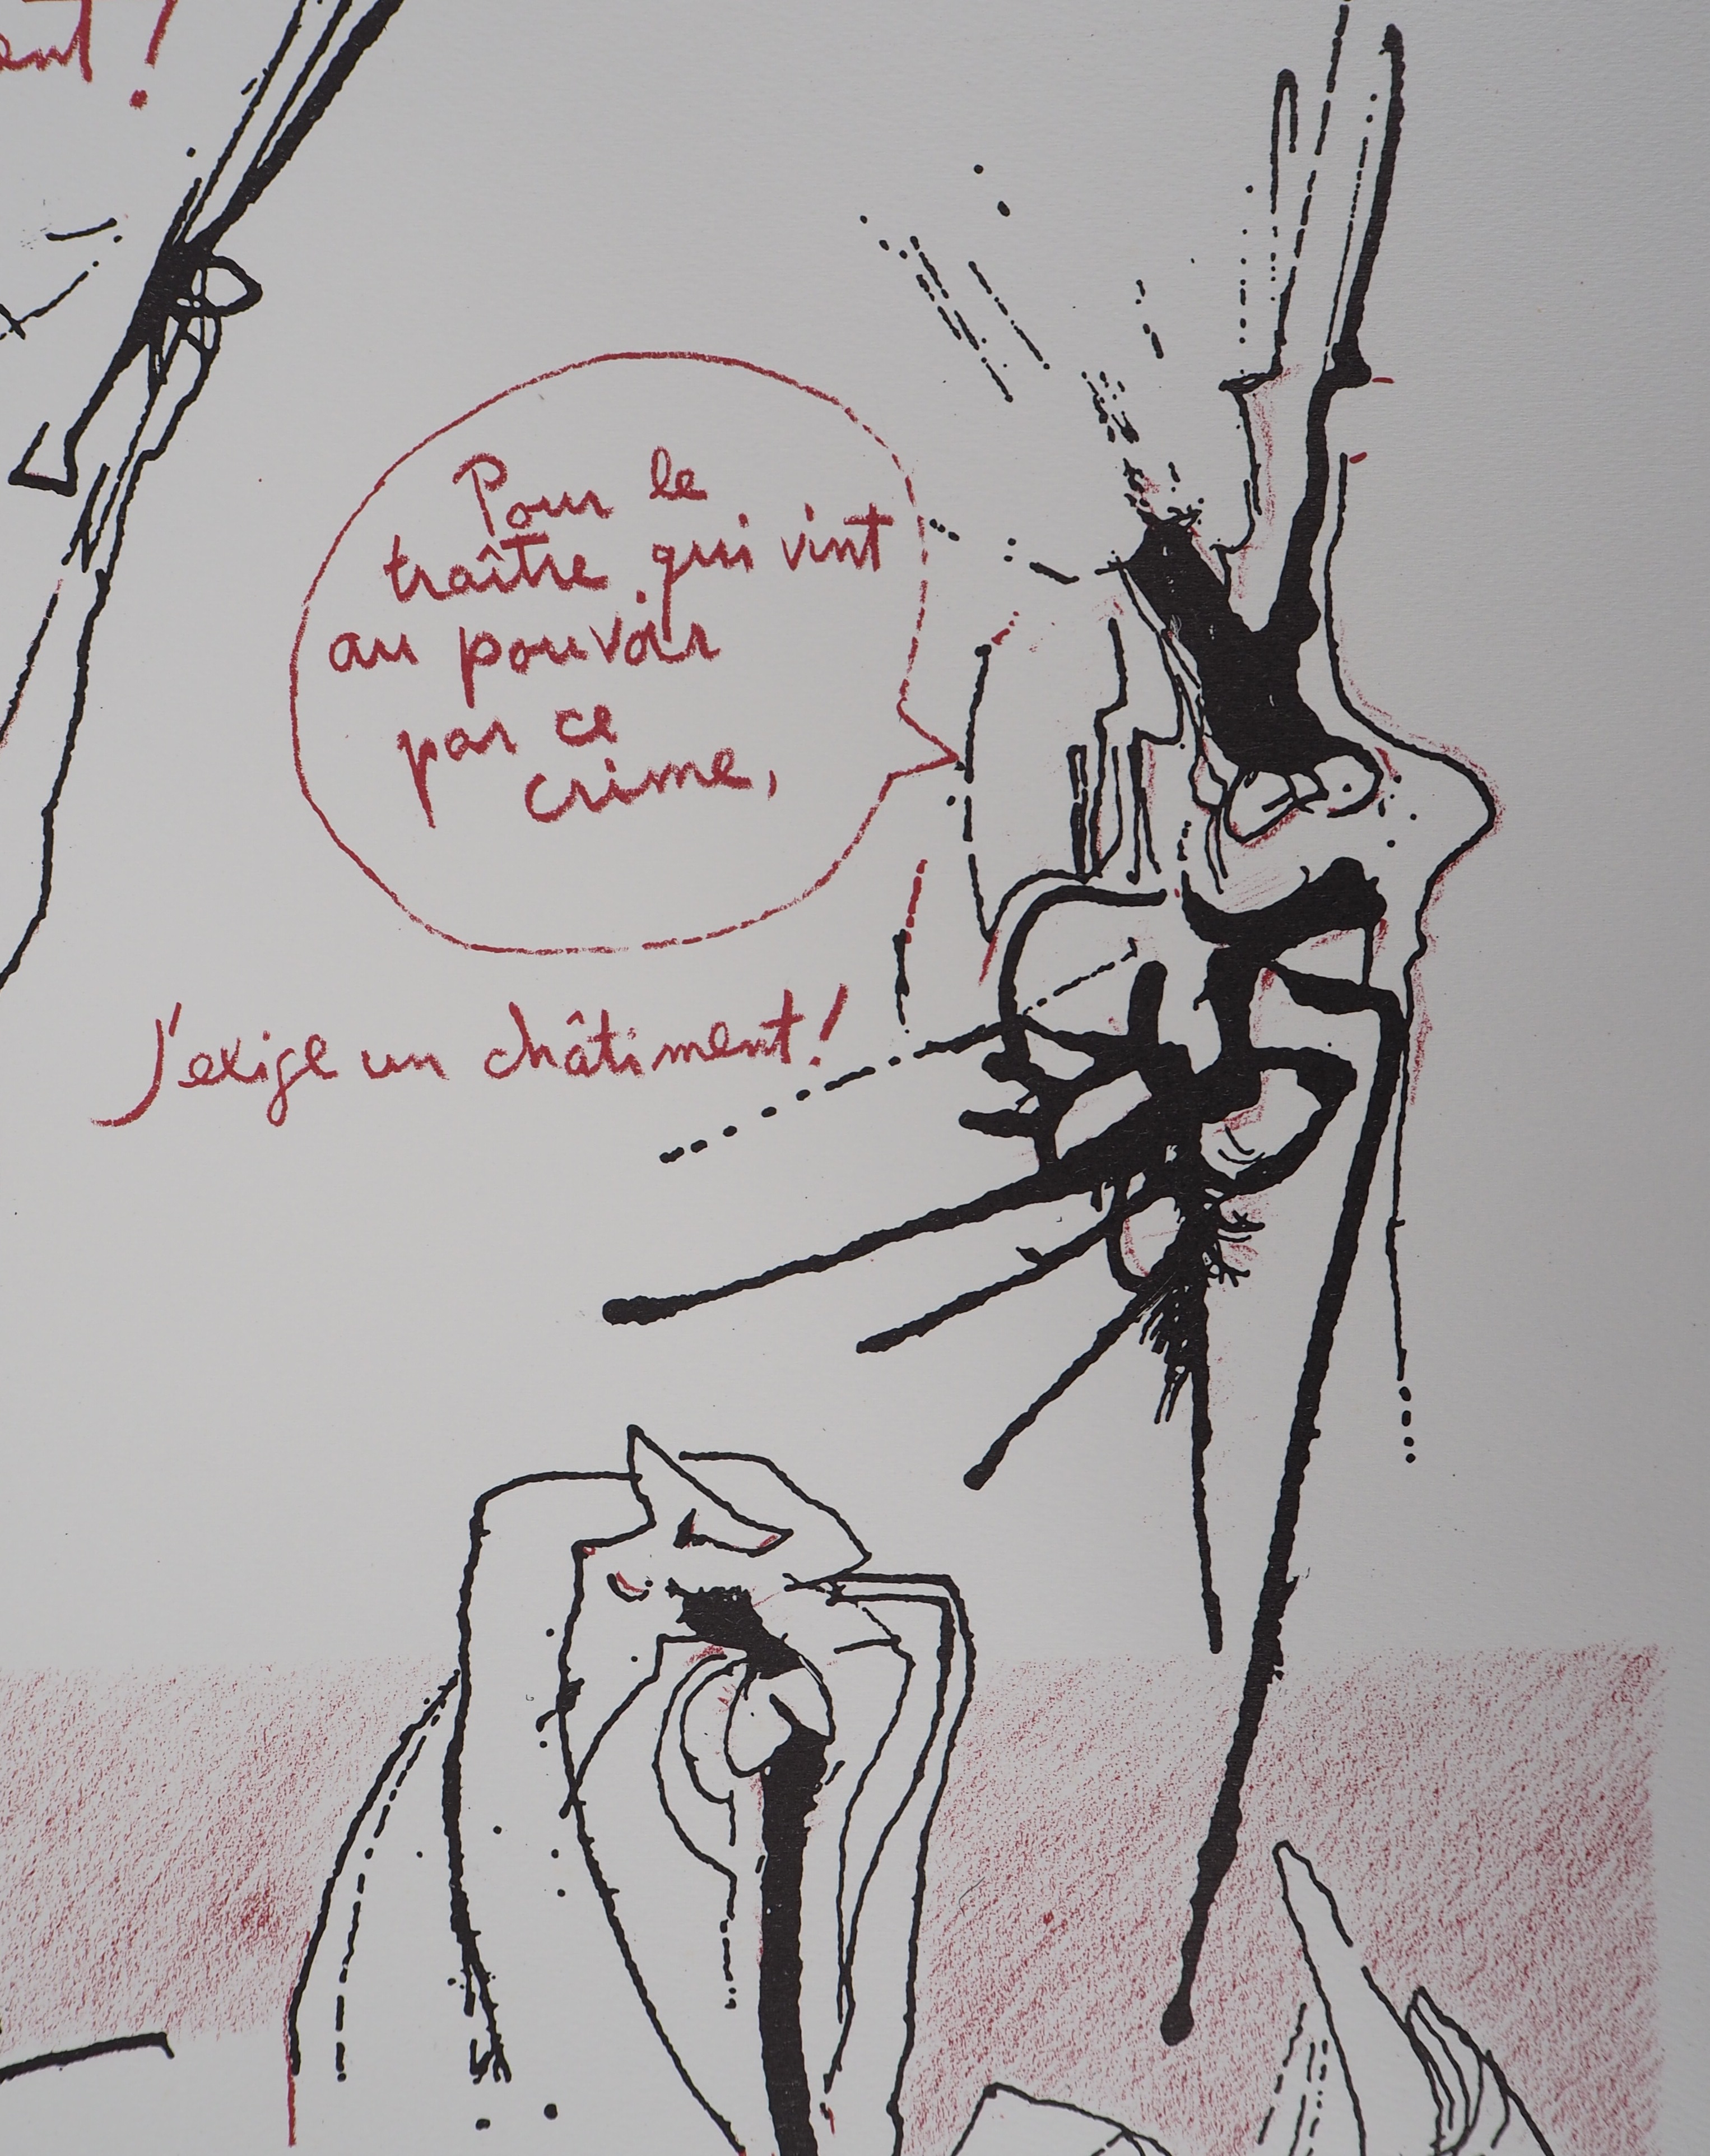 ant !
Pour le
traître qui vint
au pouvoir
par ce
crime,
j'exige un châtiment !